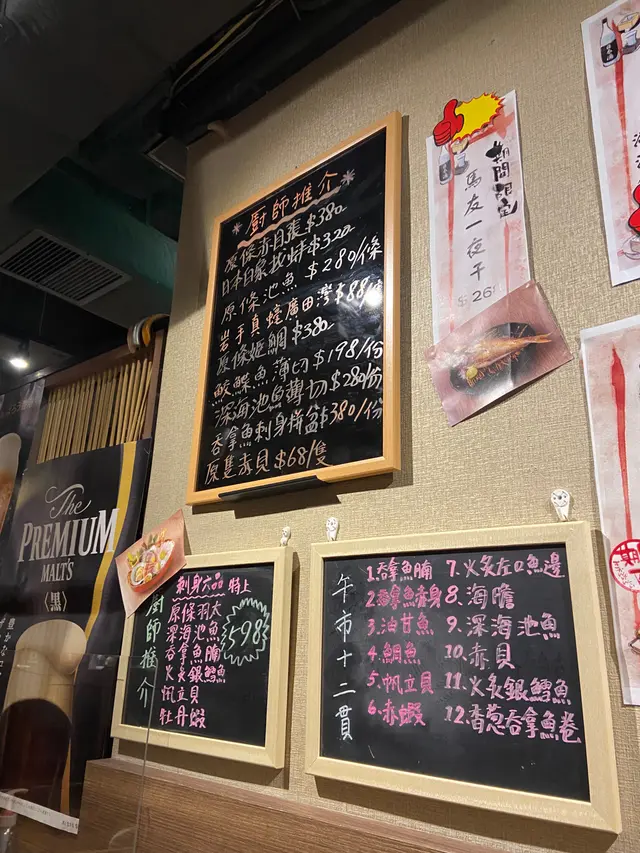 *廚師推介*
原條赤目張$380
日本白象拔蚌$320
原條池魚 $280/條
岩手真蠔廣田灣$88/隻
原條姫鯛 $380
鮫鰈魚薄切$198/份
深海池魚薄切$280/份
吞拿魚刺身拼盆$380/份
原隻赤貝 $68/隻
期間限定
馬友一夜干
$26
The
PREMIUM
MALT'S
〈黒〉
廚師推介
刺身六品 特上
原條羽太
深海池魚
吞拿魚腩
火炙銀鱈魚
帆立貝
牡丹蝦
$598
午市十二貫
1.吞拿魚腩
2.吞拿魚赤身
3.油甘魚
4.鯛魚
5.帆立貝
6.赤蝦
7.火炙左口魚邊
8.海膽
9.深海池魚
10.赤貝
11.火炙銀鱈魚
12.香蔥吞拿魚卷